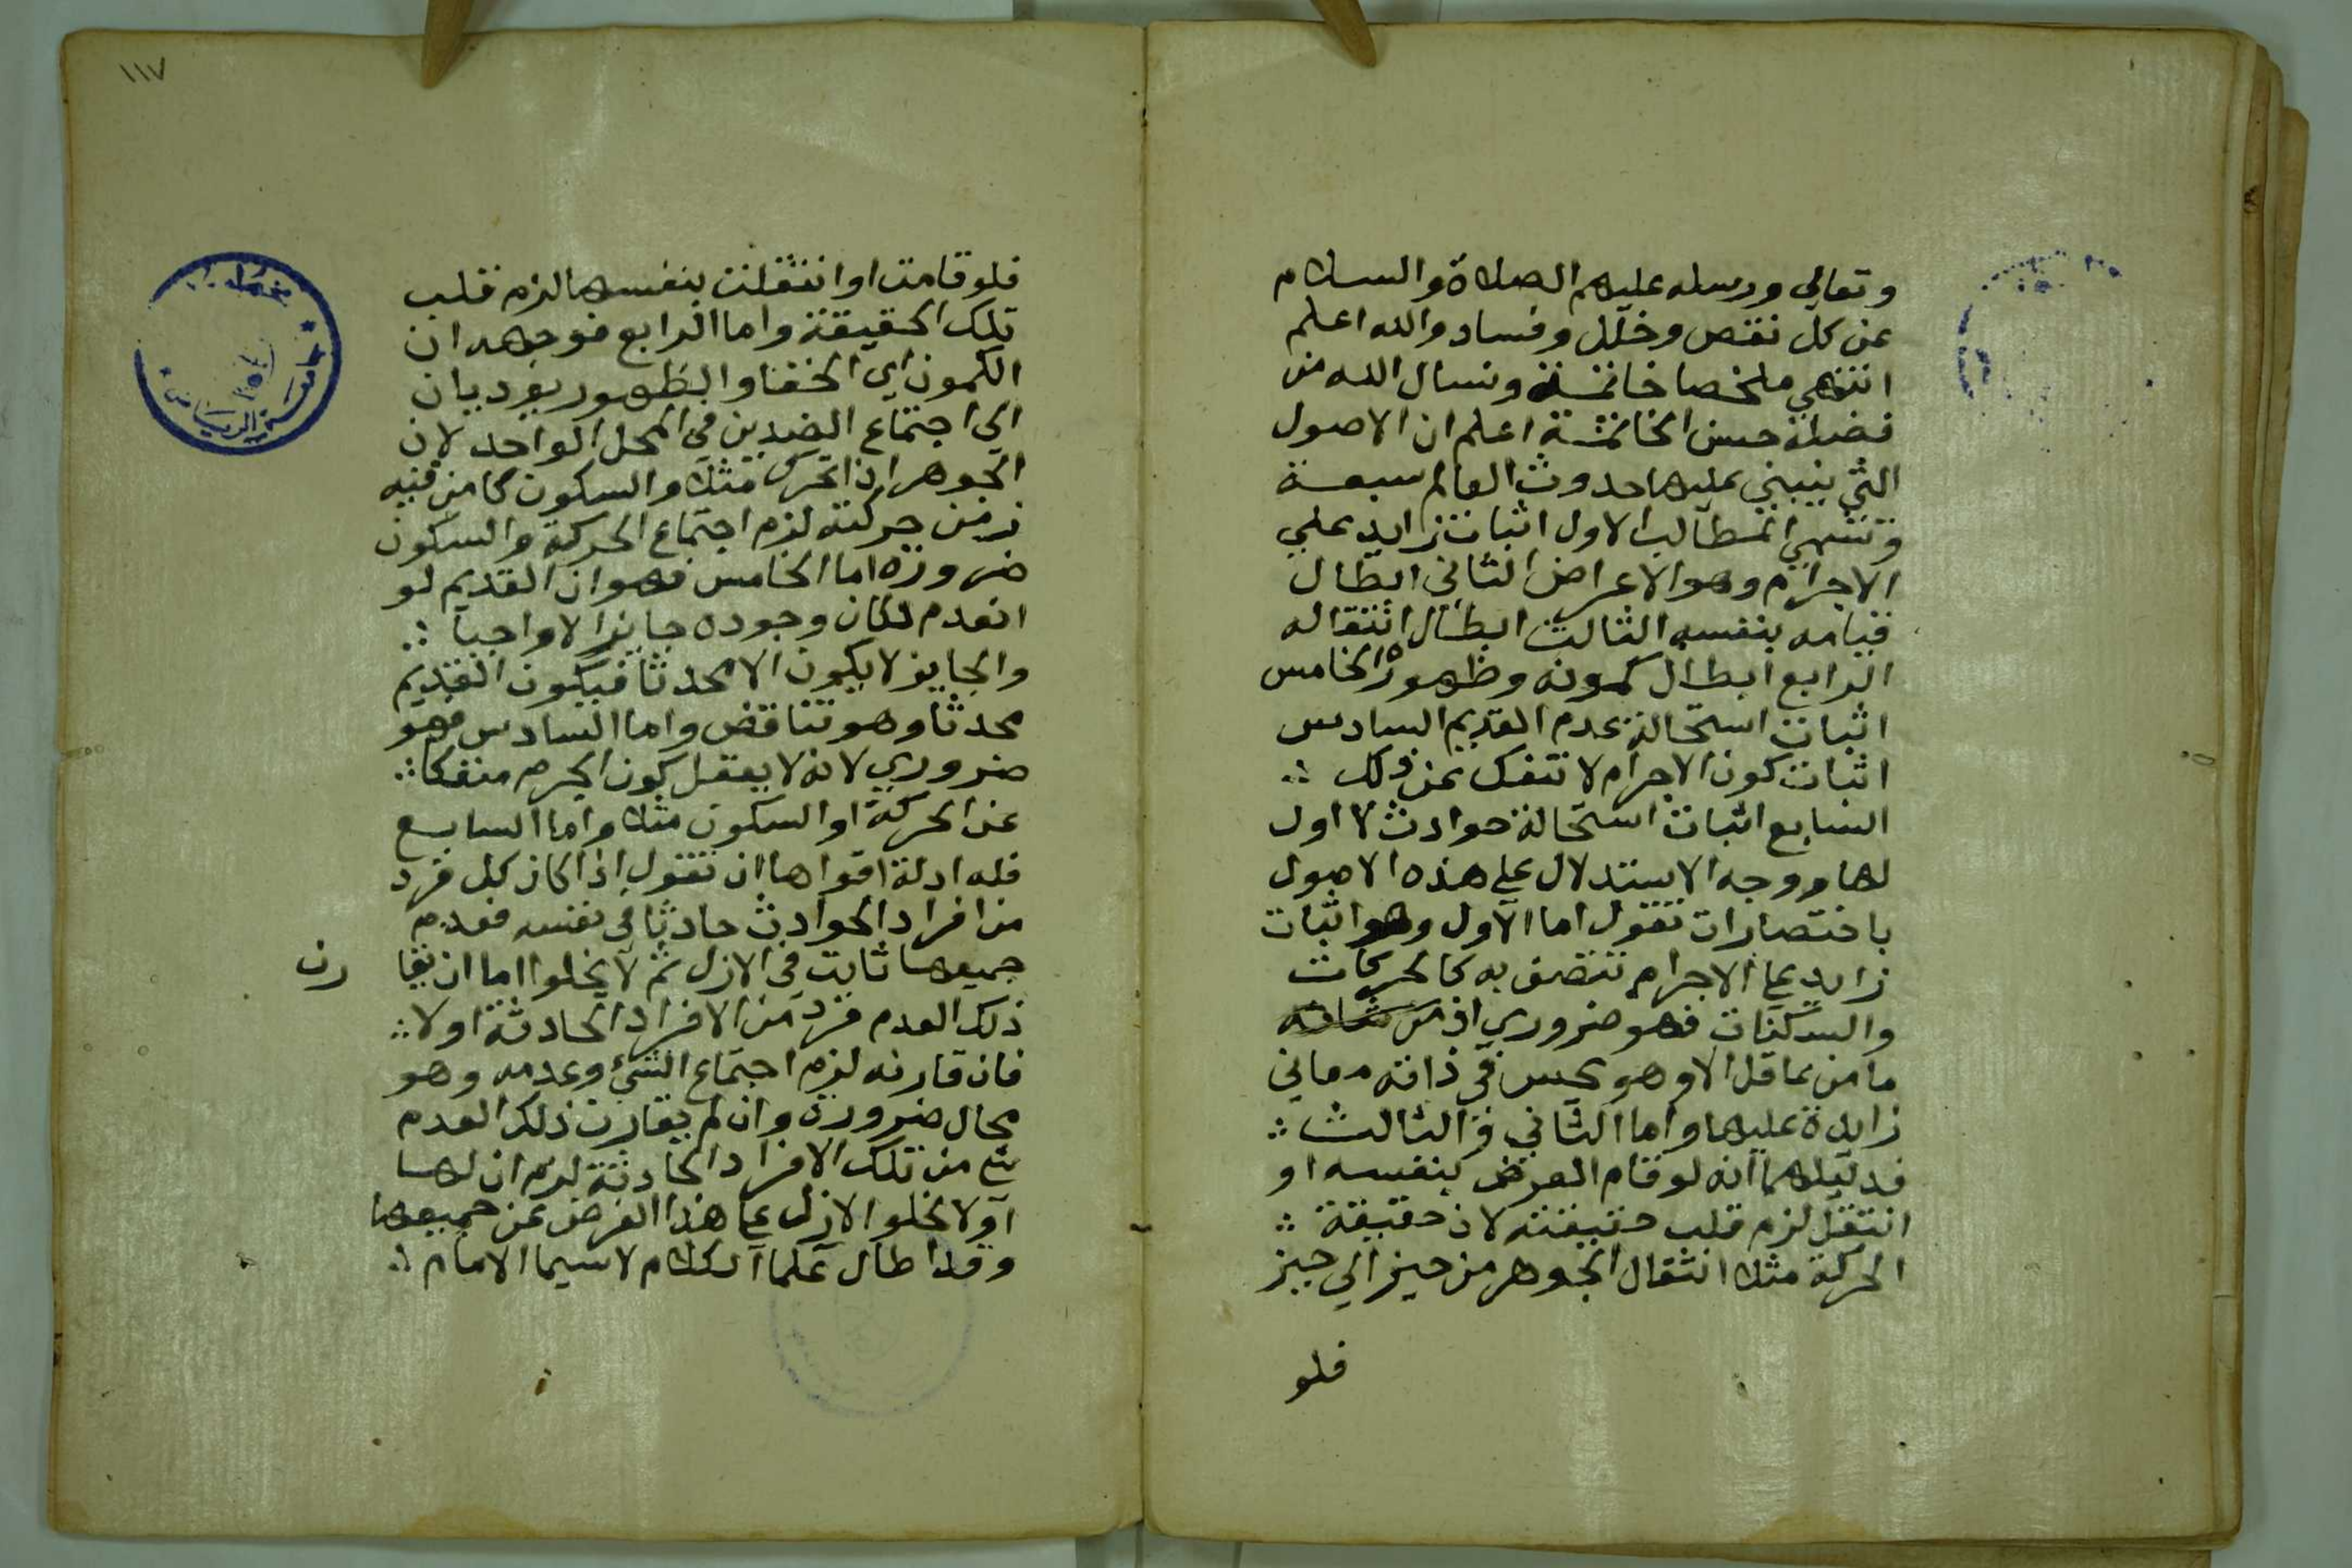 وتعالي ورسله عليهم الصلاة والسلام
عن كل نقص وخلل وفساد والله اعلم
انتهي ملخصا خاتمة ونسال الله من
فضله حسن الخاتمة اعلم ان الاصول
التي ينبني عليها حدوث العالم سبعة
وتنتهي المطالب الاول اثبات زايد علي
الاجرام وهو الاعراض الثاني ابطال
قيامه بنفسه الثالث ابطال انتقاله
الرابع ابطال كمونه وظهوره الخامس
اثبات استحالة عدم القديم السادس
اثبات كون الاجرام لا تنفك عن ذلك ؞
السابع اثبات استحالة حوادث لا اول
لها ووجه الاستدلال علي هذه الاصول
باختصارات نقول اما الاول وهو اثبات
زايد علي الاجرام تتصف به كالحركات
والسكنات فهو ضروري اذ
ما من عاقل الا وهو يحس في ذاته معاني
زايدة عليها واما الثاني والثالث ؞
فدليلهما انه لو قام العرض بنفسه او
انتقل لزم قلب حقيقته لان حقيقة ؞
الحركة مثلا انتقال الجوهر من حيز الي حيز
فلو
١١٧
فلو قامت او انتقلت بنفسها لزم قلب
تلك الحقيقة واما الرابع فوجهه ان
الكمون اي الخفا والظهور يوديان
الي اجتماع الضدين في المحل الواحد لان
الجوهر اذا تحرك مثلا والسكون كامن فيه
زمن حركته لزم اجتماع الحركة والسكون
ضرورة اما الخامس فهو ان القديم لو
انعدم لكان وجوده جايزا لا واجبا ؞
والجايز لا يكون الا محدثا فيكون القديم
محدثا وهو تناقض واما السادس فهو
ضروري لانه لا يعقل كون الجرم منفكا ؞
عن الحركة او السكون مثلا واما السابع
فله ادلة اقواها ان نقول اذا كان كل فرد
من افراد الحوادث حادثا في نفسه فعدم
جميعها ثابت في الازل ثم لا يخلوا اما ان يقا رن
ذلك العدم فرد من الافراد الحادثة اولا ؞
فان قارنه لزم اجتماع الشيء وعدمه وهو
محال ضرورة وان لم يقارن ذلك العدم
شي من تلك الافراد الحادثة لزم ان لها
اولا لخلو الازل علي هذا الفرض عن جميعها
وقد اطال علما الكلام لاسيما الامام ؞
جامعة الرياض